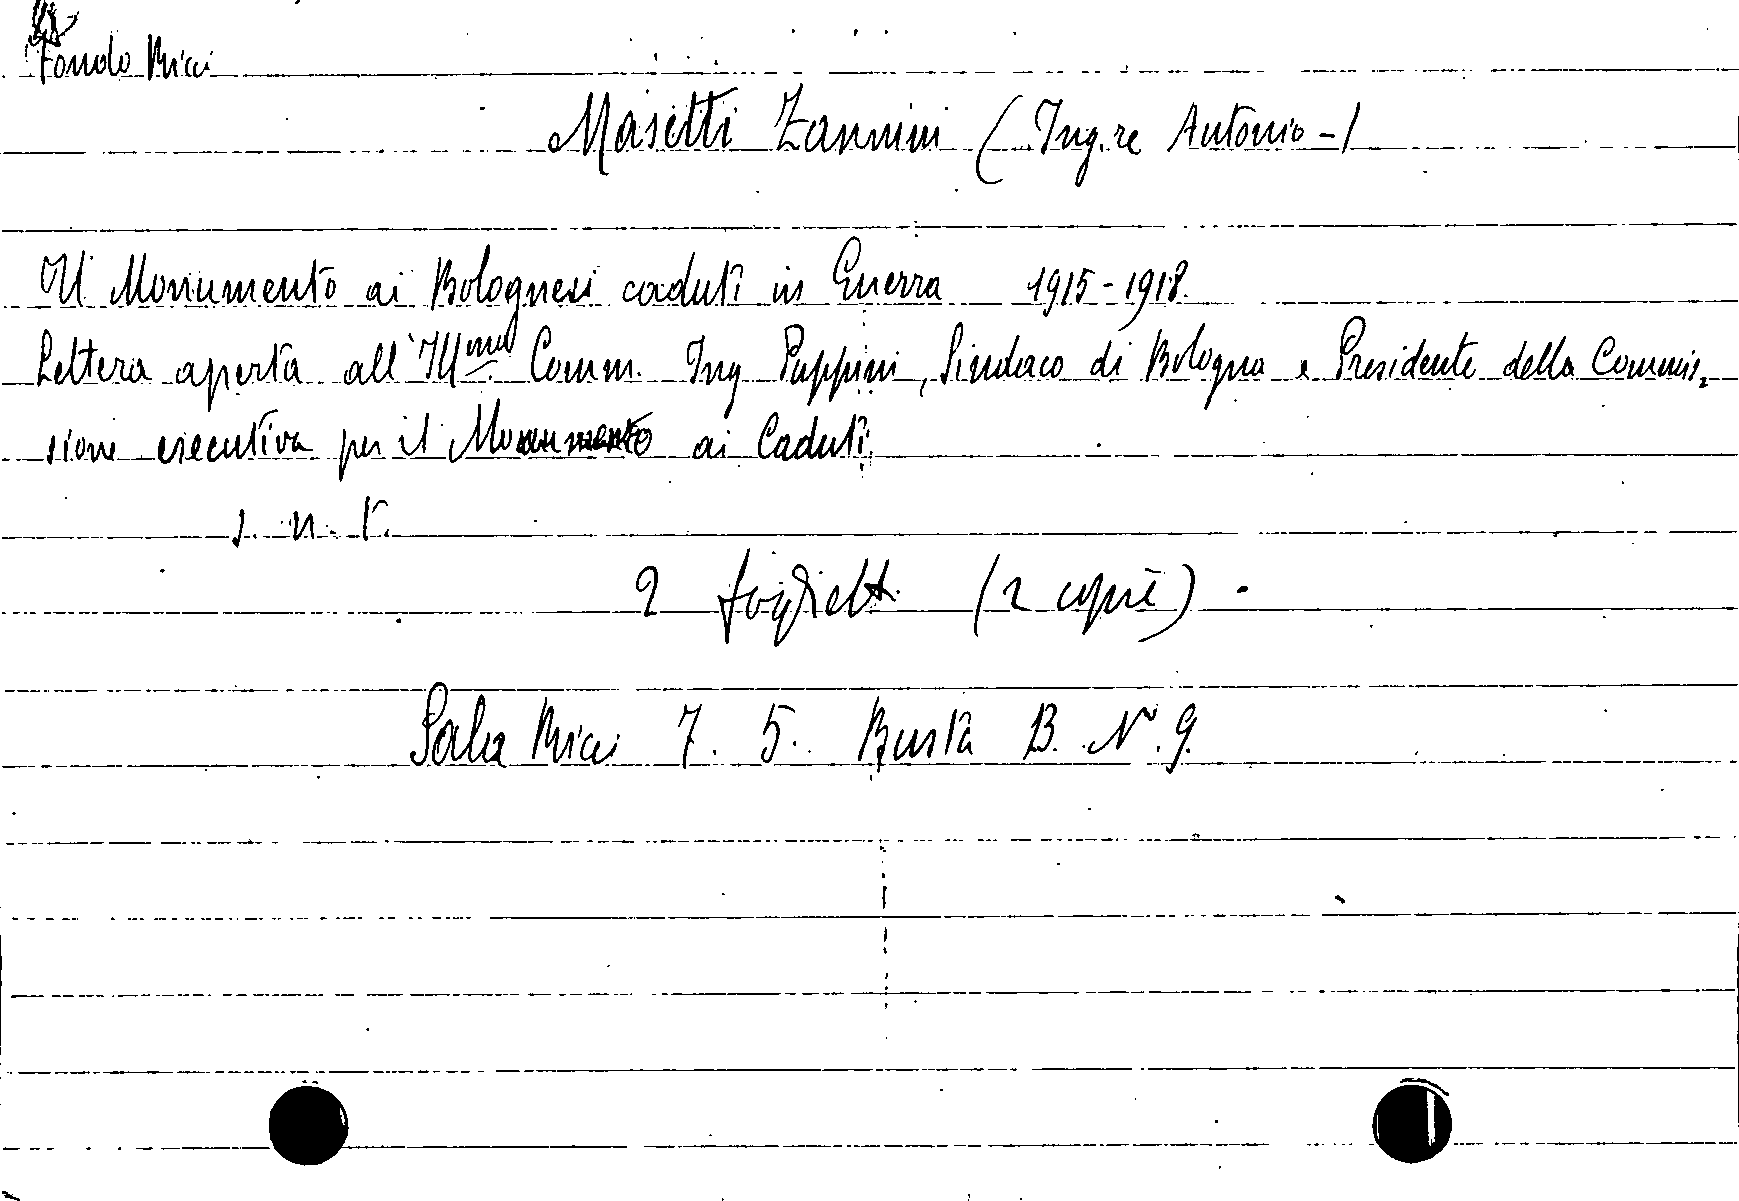 Fondo Ricci
Masetti Zannini (Ing.re Antonio-)
Il Monumento ai Bolognesi caduti in Guerra 1915-1918.
Lettera aperta all'Ill.mo Comm. Ing Puppini, Sindaco di Bologna e Presidente della Commis-
sione esecutiva per il Monumento ai Caduti.
s. n. t.
2 foglietti (2 copie).
Sala Ricci 7. 5. Busta B. N. 9.